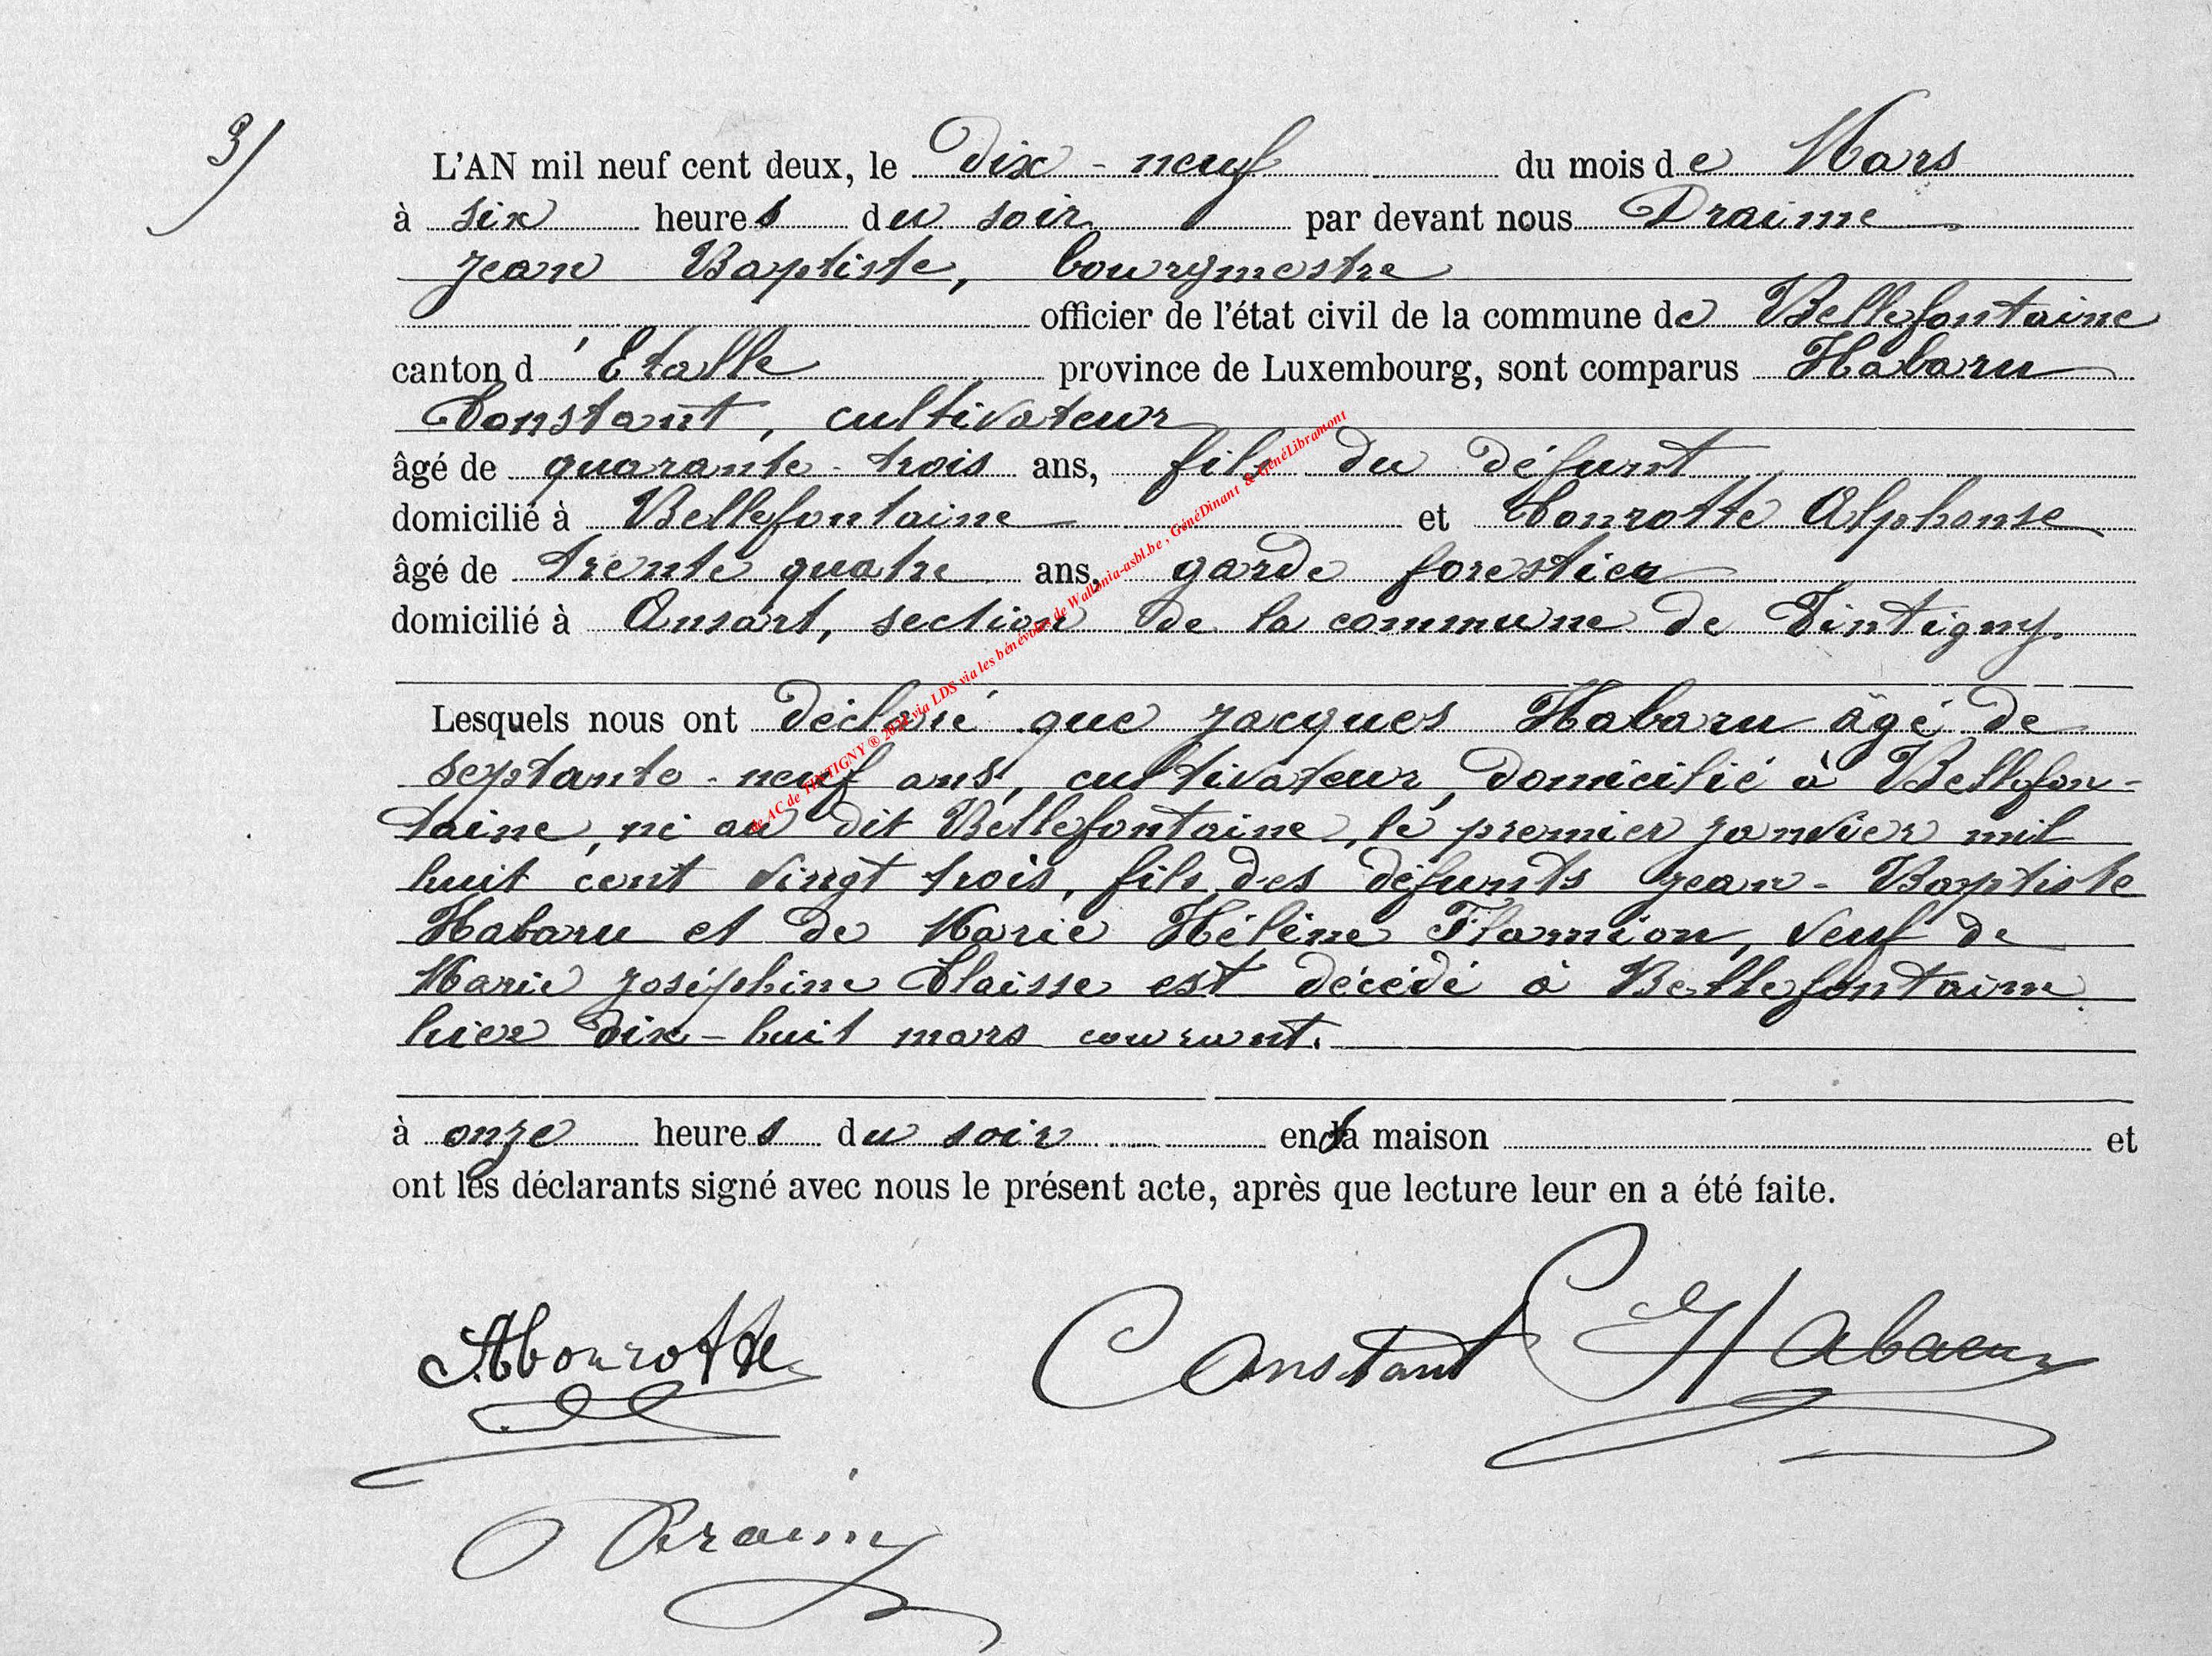 3/
L'AN mil neuf cent deux, le dix-neuf du mois de Mars
à six heures du soir par devant nous Draime
Jean Baptiste, bourgmestre
officier de l'état civil de la commune de Bellefontaine
canton d'Etalle province de Luxembourg, sont comparus Habaru
Constant, cultivateur
âgé de quarante-trois ans, fils du défunt
domicilié à Bellefontaine et Conrotte Alphonse
âgé de trente quatre ans, garde forestier
domicilié à Ansart, section de la commune de Tintigny.
Lesquels nous ont déclaré que Jacques Habaru âgé de
septante-neuf ans, cultivateur, domicilié à Bellefon-
taine, né au dit Bellefontaine, le premier janvier mil
huit cent vingt trois, fils des défunts Jean-Baptiste
Habaru et de Marie Hélène Flamion, veuf de
Marie Joséphine Claisse est décédé à Bellefontaine
hier dix-huit mars courant.
à onze heures du soir en sa maison et
ont les déclarants signé avec nous le présent acte, après que lecture leur en a été faite.
AConrotte Constant Habaru
Draime
de AC de TINTIGNY ® 2024 via LDS via les bénévoles de Wallonia-asbl.be, GénéDinant & GénéLibramont